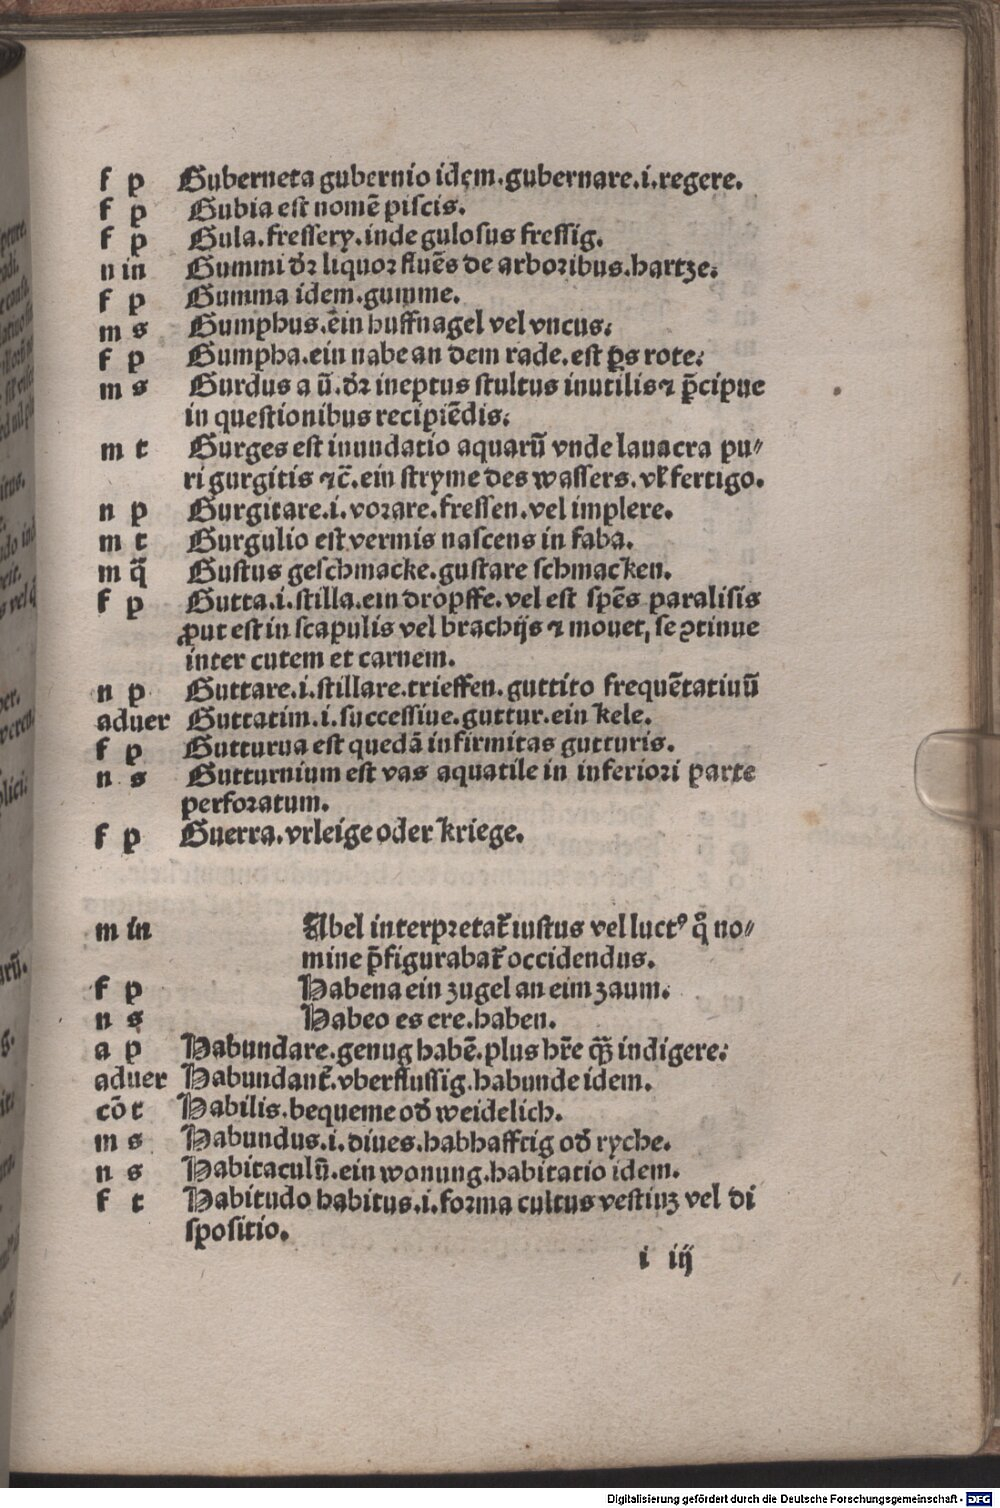 f p Guberneta gubernio idem.gubernare.i.regere.
f p Gubia est nomē piscis.
f p Gula.fressery.inde gulosus fressig.
n in Gummi dr̄ liquor fluēs de arboribus.hartze.
f p Gumma idem.gumme.
m s Gumphus.ein huffnagel vel vncus.
f p Gumpha.ein nabe an dem rade.est ꝑs rote.
m s Gurdus a ū.dr̄ ineptus stultus inutilis ⁊ p̄cipue
in questionibus recipiēdis.
m t Gurges est inundatio aquarū vnde lauacra pu⸗
ri gurgitis ⁊c̄.ein stryme des wassers.vl̕ fertigo.
n p Gurgitare.i.vorare.fressen.vel implere.
m t Gurgulio est vermis nascens in faba.
m q̄ Gustus geschmacke.gustare schmacken.
f p Gutta.i.stilla.ein dropffe.vel est spēs paralisis
ꝓut est in scapulis vel brachijs ⁊ mouet, se ꝯtinue
inter cutem et carnem.
n p Guttare.i.stillare.trieffen.guttito frequētatiuū
aduer Guttatim.i.successiue.guttur.ein kele.
f p Gutturua est quedā infirmitas gutturis.
n s Gutturnium est vas aquatile in inferiori parte
perforatum.
f p Guerra.vrleige oder kriege.
m in Abel interpretat̄ iustus vel luctꝰ q̊ no⸗
mine p̄figurabat̄ occidendus.
f p Habena ein zugel an eim zaum.
n s Habeo es ere.haben.
a p Habundare.genug habē.plus hr̄e q̄ꝫ indigere.
aduer Habundant̄.vberflussig.habunde idem.
cō t Habilis.bequeme od̄ weidelich.
m s Habundus.i.diues.habhafftig od̄ ryche.
n s Habitaculū.ein wonung.habitatio idem.
f t Habitudo habitus.i.forma cultus vestiuꝫ vel di
spositio.
i iij
Digitalisierung gefördert durch die Deutsche Forschungsgemeinschaft - DFG